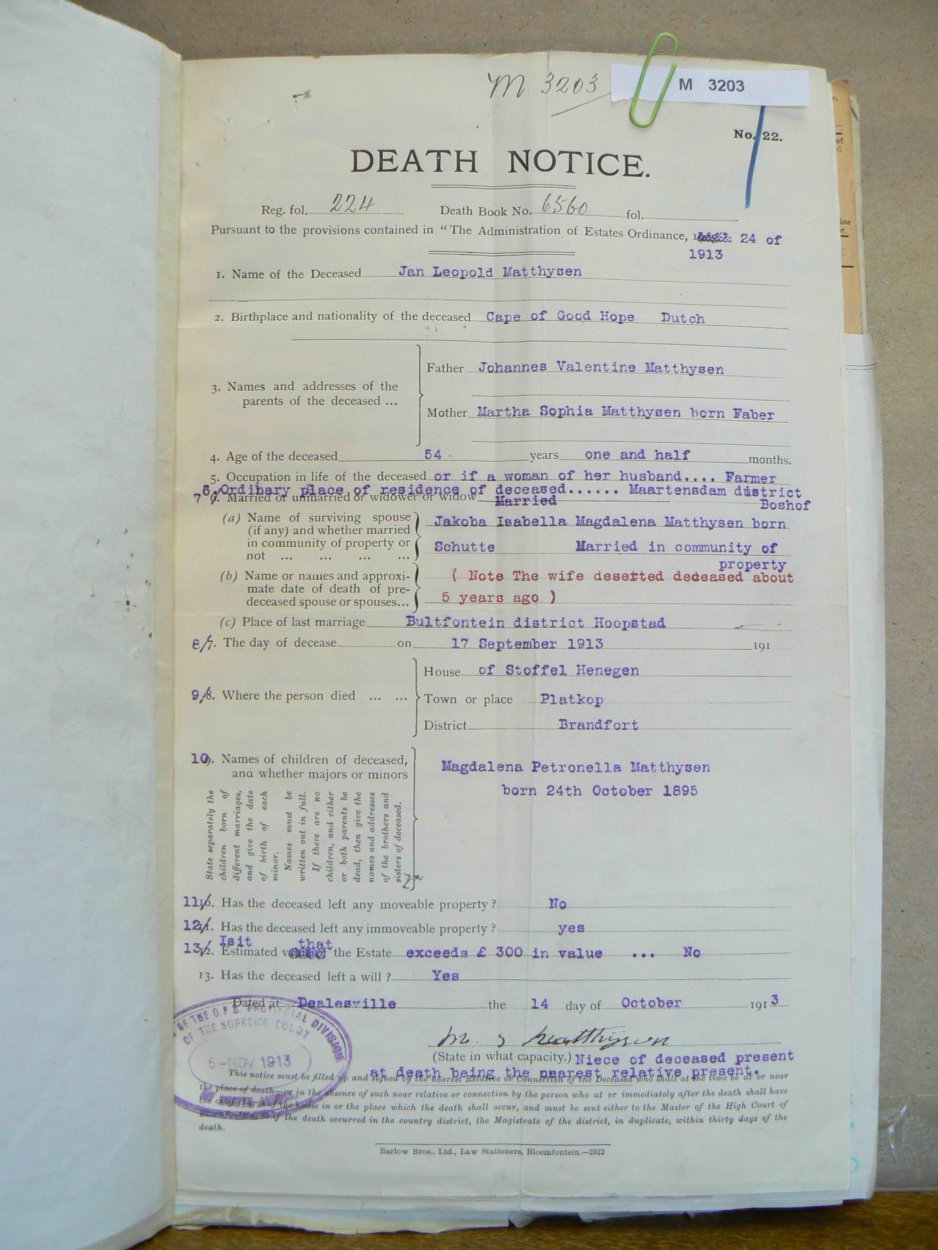 M. 3203
M 3203
No. 22.
DEATH NOTICE.
Reg. fol. 224 Death Book No. 6560 fol.
Pursuant to the provisions contained in "The Administration of Estates Ordinance, 24 of
1913
1. Name of the Deceased Jan Leopold Matthysen
2. Birthplace and nationality of the deceased Cape of Good Hope Dutch
3. Names and addresses of the
parents of the deceased ...
Father Johannes Valentine Matthysen
Mother Martha Sophia Matthysen born Faber
4. Age of the deceased 54 years one and half months.
5. Occupation in life of the deceased or if a woman of her husband.... Farmer
6. Ordibary place of residence of deceased...... Maartensdam district
Boshof
7 Married or unmarried or widower or widow Married
(a) Name of surviving spouse
(if any) and whether married
in community of property or
not ... ... ... ...
Jakoba Isabella Magdalena Matthysen born
Schutte Married in community of
property
(b) Name or names and approxi-
mate date of death of pre-
deceased spouse or spouses...
( Note The wife desetted deceased about
5 years ago )
(c) Place of last marriage Bultfontein district Hoopstad
8/7. The day of decease on 17 September 1913 191
9/8. Where the person died ... ...
House of Stoffel Henegen
Town or place Platkop
District Brandfort
10. Names of children of deceased,
and whether majors or minors
State separately the
children born of
different marriages,
and give the date
of birth of each
minor.
Names must be
written out in full.
If there are no
children, and either
or both parents be
dead, then give the
names and addresses
of the brothers and
sisters of deceased.
Magdalena Petronella Matthysen
born 24th October 1895
11/ Has the deceased left any moveable property? No
12/ Has the deceased left any immoveable property? yes
13/ Isit that
Estimated the Estate exceeds £ 300 in value ... No
13. Has the deceased left a will? Yes
Dated at Dealesville the 14 day of October 1913
(State in what capacity.) Niece of deceased present
at death being the nearest relative present.
OF THE O.F.S. PROVINCIAL DIVISION
OF THE SUPREME COURT
6-NOV 1913
This notice must be filled up and signed by the nearest relative or connection of the Deceased who shall at the time be at or near
the place of death—or in the absence of such near relative or connection by the person who at or immediately after the death shall have
the chief charge of the house in or the place which the death shall occur, and must be sent either to the Master of the High Court of
Bloemfontein, or if the death occurred in the country district, the Magistrate of the district, in duplicate, within thirty days of the
death.
Barlow Bros., Ltd., Law Stationers, Bloemfontein.—2922